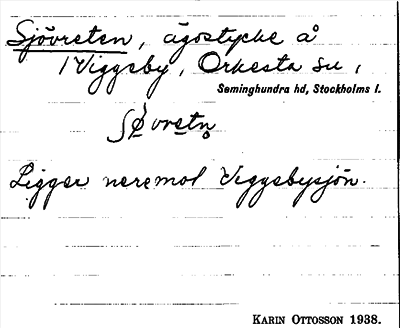 Sjövreten, ägostycke å
Viggeby, Orkesta sn,
Seminghundra hd, Stockholms l.
Ligger neremot Viggebysjön.
KARIN OTTOSSON 1938.